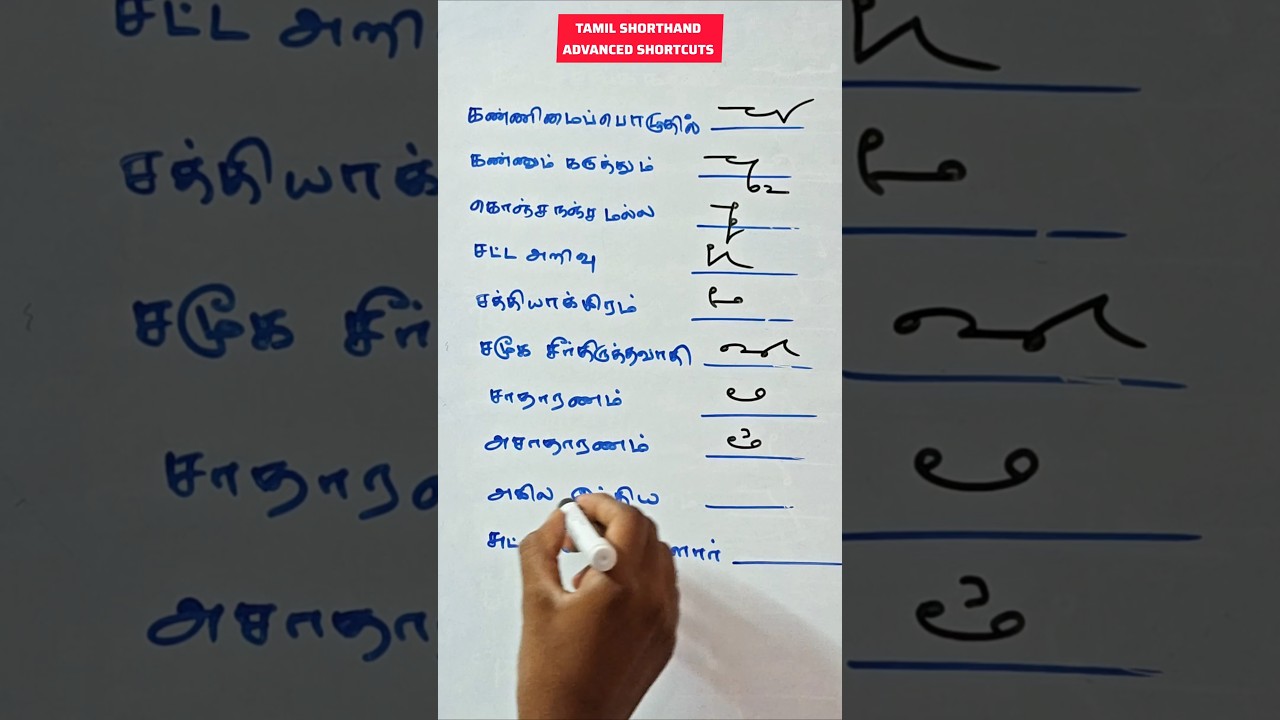 TAMIL SHORTHAND
ADVANCED SHORTCUTS
கண்ணிமைப்பொழுதில்
கண்ணும் கருத்தும்
கொஞ்சநஞ்சமல்ல
சட்ட அறிவு
சத்தியாக்கிரம்
சமூக சீர்திருத்தவாதி
சாதாரணம்
அசாதாரணம்
அகில